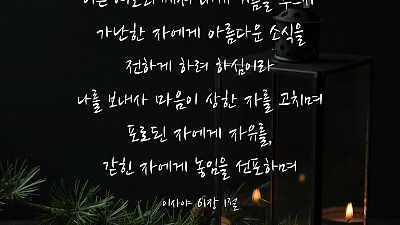 가난한 자에게 아름다운 소식을
전하게 하려 하심이라
나를 보내사 마음이 상한 자를 고치며
포로된 자에게 자유를,
갇힌 자에게 놓임을 선포하며
이사야 61장 1절